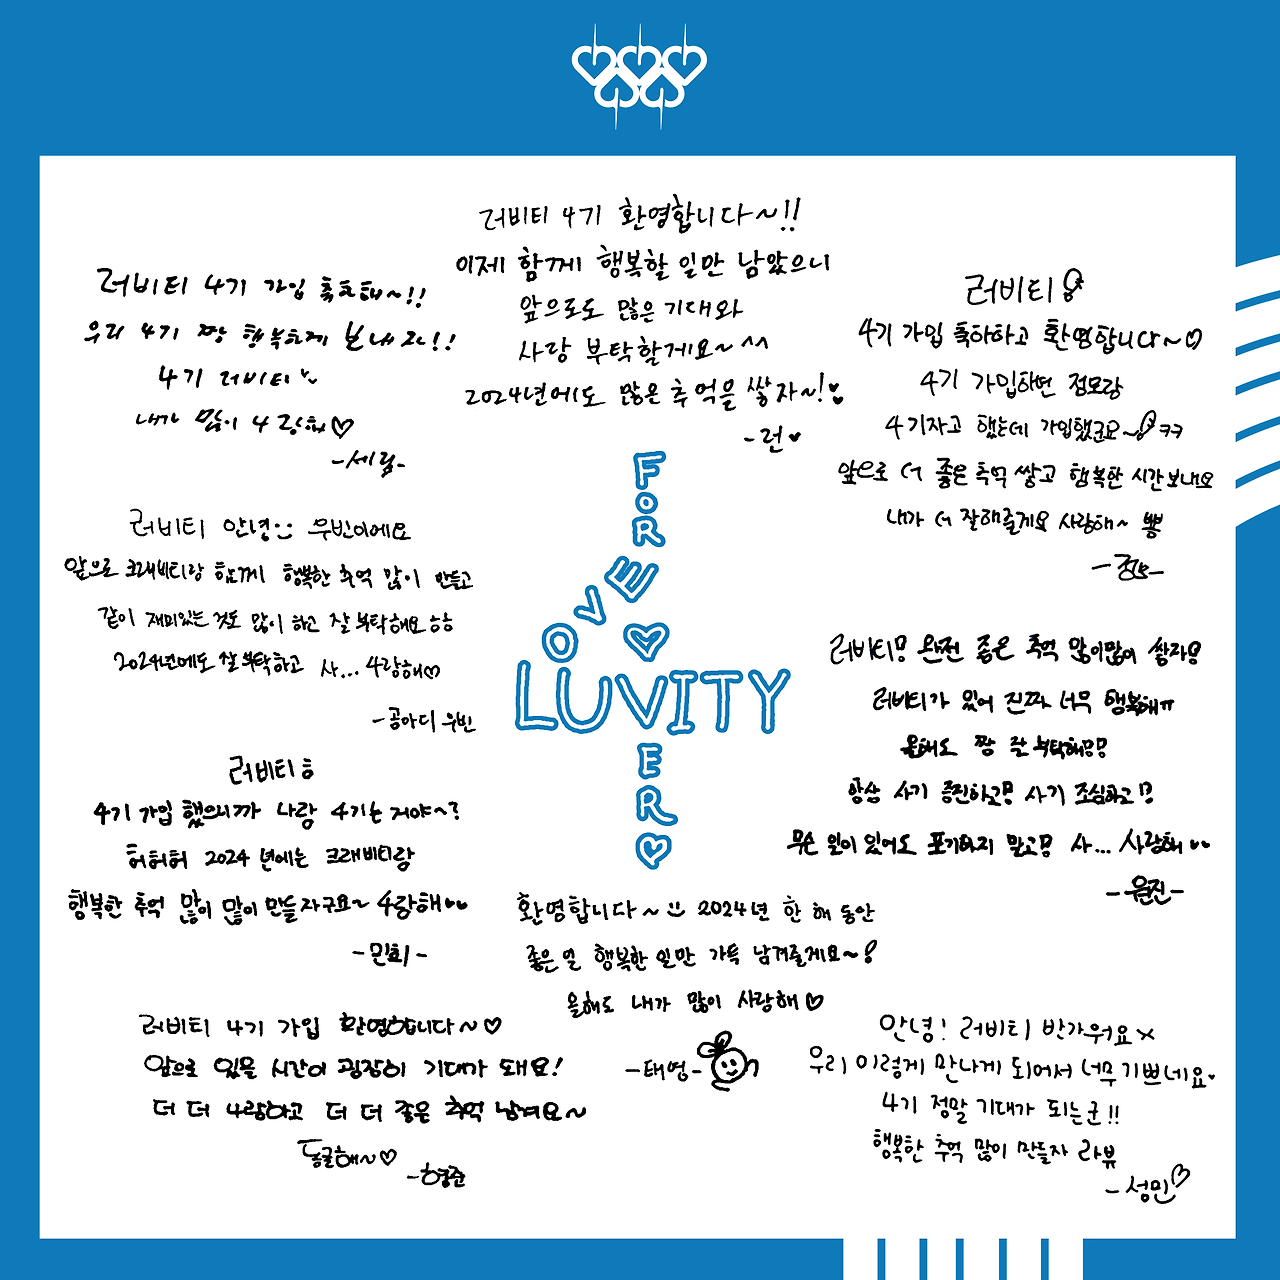 러비티 4기 환영합니다~!!
이제 함께 행복할 일만 남았으니
앞으로도 많은 기대와
사랑 부탁할게요~ ^^
2024년에도 많은 추억을 쌓자~!
-런♥
러비티 4기 가입 축하해~!!
우리 4기 짱 행복하게 보내자!!
4기 러비티
내가 많이 4랑해♡
-세림-
러비티
4기 가입 축하하고 환영합니다~♡
4기 가입하면 정모랑
4기자고 했는데 가입했군요~ ㅋㅋ
앞으로 더 좋은 추억 쌓고 행복한 시간보내요
내가 더 잘해줄게요 사랑해~ 뿅
-정모-
러비티 안녕 우빈이에요
앞으로 크래비티랑 함께 행복한 추억 많이 만들고
같이 재미있는 것도 많이 하고 잘 부탁해요 ㅎㅎ
2024년에도 잘 부탁하고 사... 4랑해♡
-공아디 우빈
FOREVER
LOVE
LUVITY
러비티! 완전 좋은 추억 많이많이 쌓자!
러비티가 있어 진짜 너무 행복해ㅠ
올해도 짱 잘 부탁해!!
항상 사기 증진하고! 사기 조심하고!
무슨 일이 있어도 포기하지 말고! 사... 사랑해♥♥
-원진-
러비티ㅎ
4기 가입 했으니까 나랑 4기는거야~?
허허허 2024년에는 크래비티랑
행복한 추억 많이 많이 만들자구요~ 4랑해♥♥
-민희-
환영합니다~ 2024년 한 해 동안
좋은 일 행복한 일만 가득 남겨줄게요~!
올해도 내가 많이 사랑해♡
-태영-
러비티 4기 가입 환영합니다~♡
앞으로 있을 시간이 굉장히 기대가 돼요!
더 더 4랑하고 더 더 좋은 추억 남겨요~
동글해~♡
-형준
안녕! 러비티 반가워요x
우리 이렇게 만나게 되어서 너무 기쁘네요
4기 정말 기대가 되는군!!
행복한 추억 많이 만들자 라뷰
-성민♡